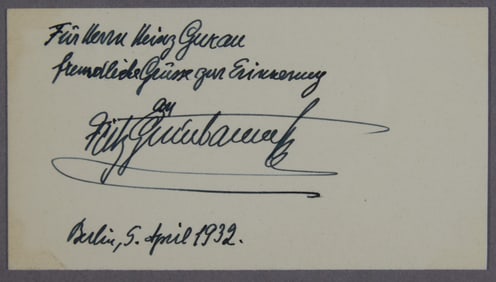 Für Herrn Heinz Gurau
freundliche Grüsse zur Erinnerung
an
Fritz Grünbaum
Berlin, 5. April 1932.